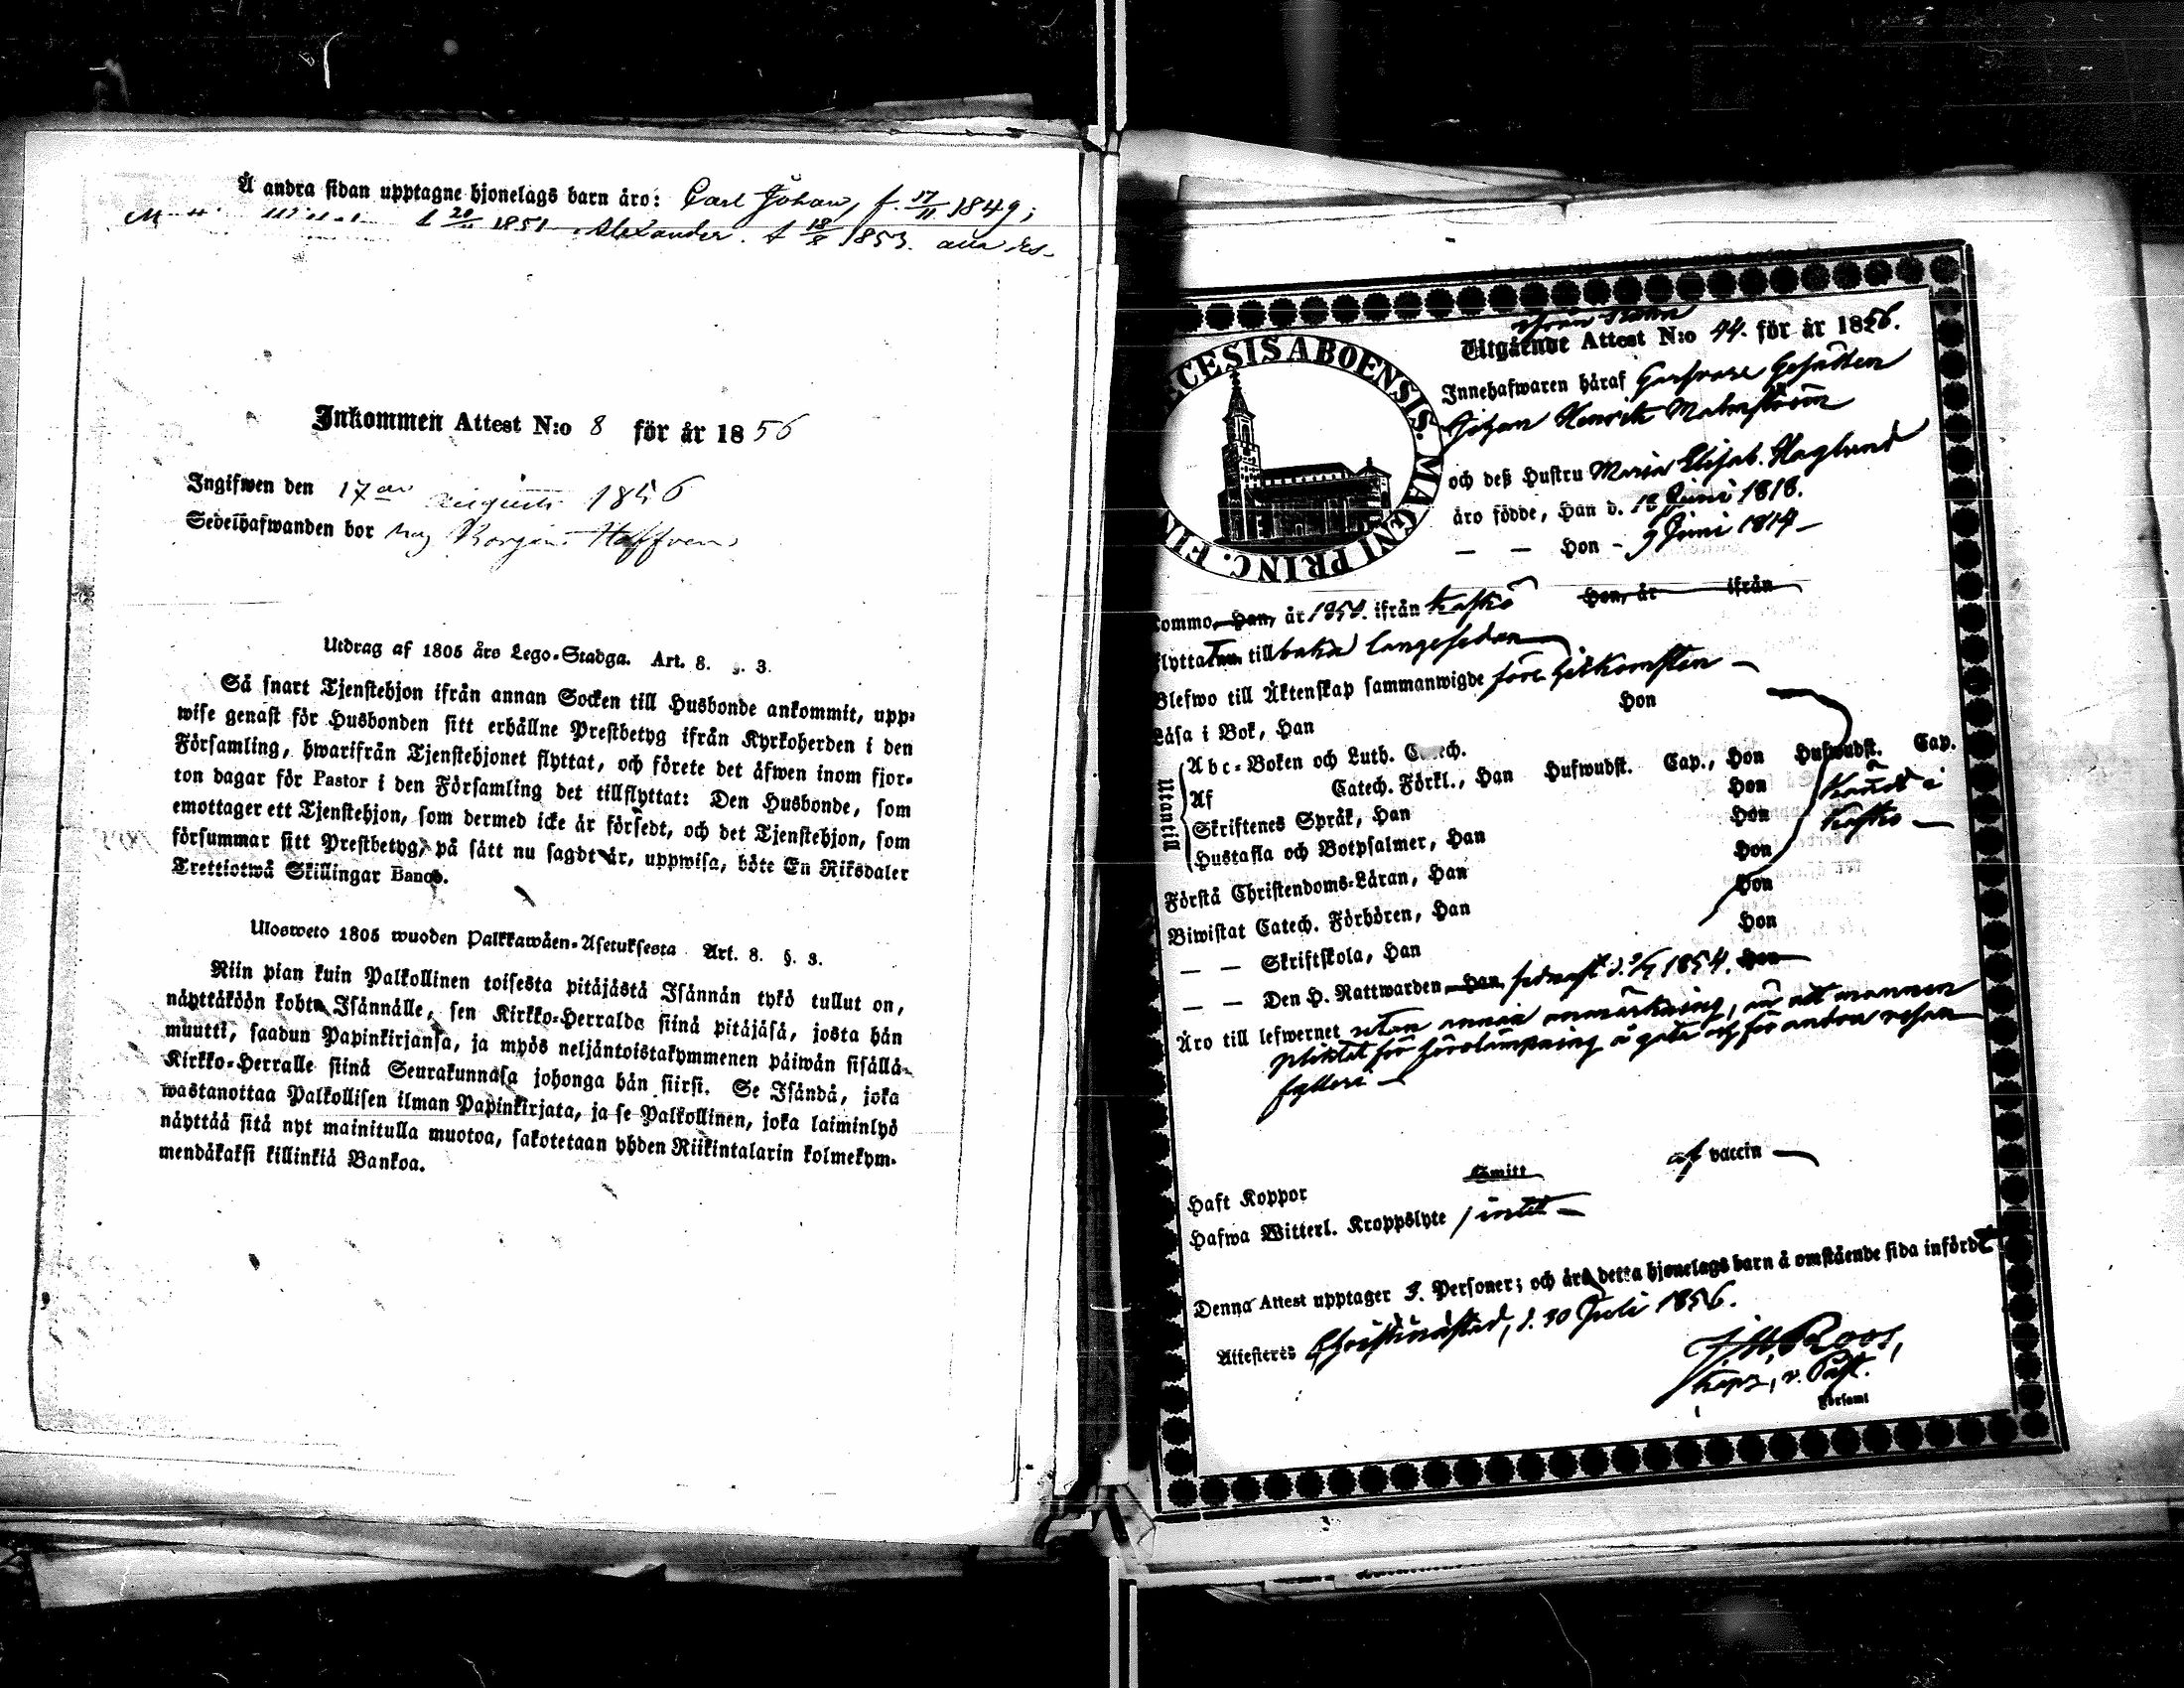 Å andra sidan upptagne hjonelags barn äro: Carl Johan, f. 17/11 1849;
1851 Alexander. f 18/8 1853.
Inkommen Attest N:o 8 för år 1856
Ingifwen den 17de augusti 1856
Sedelhafwanden bor
Utdrag af 1805 års Lego-Stadga. Art. 8. §. 3.
Så snart Tjenstehjon ifrån annan Socken till Husbonde ankommit, upp-
wise genast för Husbonden sitt erhållne Prestbetyg ifrån Kyrkoherden i den
Församling, hwarifrån Tjenstehjonet flyttat, och förete det äfwen inom fjor-
ton dagar för Pastor i den Församling det tillflyttat: Den Husbonde, som
emottager ett Tjenstehjon, som dermed icke är försedt, och det Tjenstehjon, som
försummar sitt Prestbetyg, på sätt nu sagdt är, uppwisa, böte En Riksdaler
Trettiotwå Skillingar Banco.
Ulosweto 1805 wuoden Palkkawäen-Asetuksesta Art. 8. §. 3.
Niin pian kuin Palkollinen toisesta pitäjästä Isännän tykö tullut on,
näyttäköön kohta Isännälle, sen Kirkko-Herralda siinä pitäjäsä, josta hän
muutti, saadun Papinkirjansa, ja myös neljäntoistakymmenen päiwän sisällä
Kirkko-Herralle siinä Seurakunnasa johonga hän siirsi. Se Isändä, joka
wastanottaa Palkollisen ilman Papinkirjata, ja se Palkollinen, joka laiminlyö
näyttää sitä nyt mainitulla muotoa, sakotetaan yhden Riikintalarin kolmekym-
mendäkaksi killinkiä Bankoa.
CESIS ABOENSIS. MAGNI PRINC. FIN
Utgående Attest N:o 44. för år 1856.
Innehafwaren häraf Garfvare Gesällen
Johan Henrik Malmström
och deß Hustru Maria Elisab. Haglund
äro födde, Han d. Juni 1818.
— — Hon - 9 Juni 1814 —
kommo, Han, år 1854. ifrån Kaskö Hon, år ifrån
flytta tillbaka
Blefwo till Äktenskap sammanwigde före hitkomsten —
Läsa i Bok, Han Hon
Utantill
Abc-Boken och Luth. Catech.
Af Catech. Förkl., Han Hufwudst. Cap., Hon Hufwudst. Cap.
Skriftenes Språk, Han Hon
Hustafla och Botpsalmer, Han Hon
Kaskö —
Förstå Christendoms-Läran, Han Hon
Biwistat Catech. Förhören, Han Hon
— — Skriftskola, Han Hon
— — Den H. Nattwarden, Han, 1854. Hon
Äro till lefwernet utan annan anmärkning, än att mannen
pliktat för å gata och för andra resan
fylleri —
Haft Koppor Smitt af vaccin —
Hafwa Witterl. Kroppslyte intet —
Denna Attest upptager 5. Personer; och äro detta hjonelags barn å omstående sida införde
Attesteres Christinestad, d. 30 Juli 1856.
J. H. Roos,
v. Past.
Församl